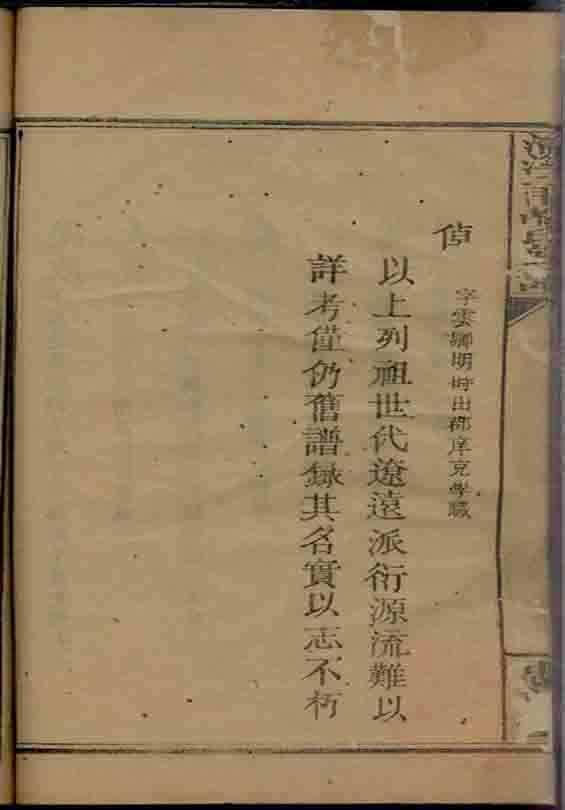 偵
字雲卿明時由郡庠充學職
以上列祖世代遼遠派衍源流難以
詳考僅仍舊譜錄其名實以志不朽